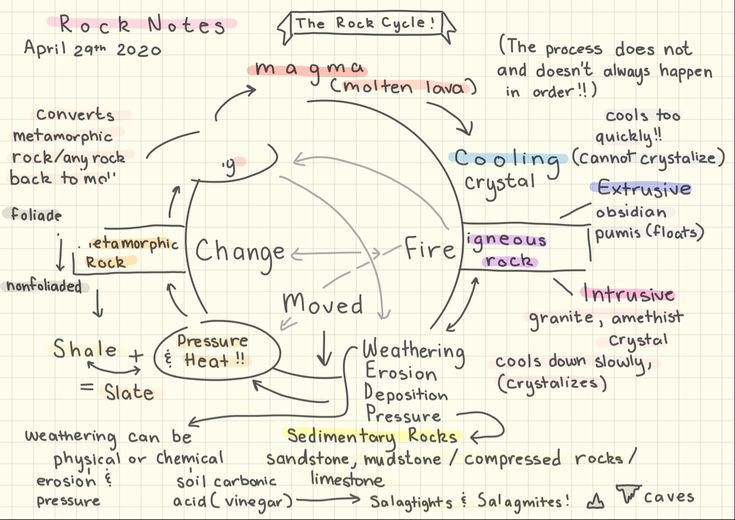 Rock Notes
April 29th 2020
The Rock Cycle!
(The process does not
and doesn't always happen
in order!!)
magma
(molten lava)
converts
metamorphic
rock/any rock
back to
cools too
quickly!!
(cannot crystalize)
Cooling
crystal
Extrusive
obsidian
pumis (floats)
foliade
nonfoliaded
etamorphic
Rock
Change
Fire
igneous
rock
Moved
Intrusive
granite, amethist
crystal
cools down slowly,
(crystalizes)
Shale +
= Slate
Pressure
& Heat!!
Weathering
Erosion
Deposition
Pressure
Sedimentary Rocks
sandstone, mudstone / compressed rocks /
limestone
weathering can be
physical or chemical
erosion &
pressure
soil carbonic
acid (vinegar)
Salagtights & Salagmites!
caves